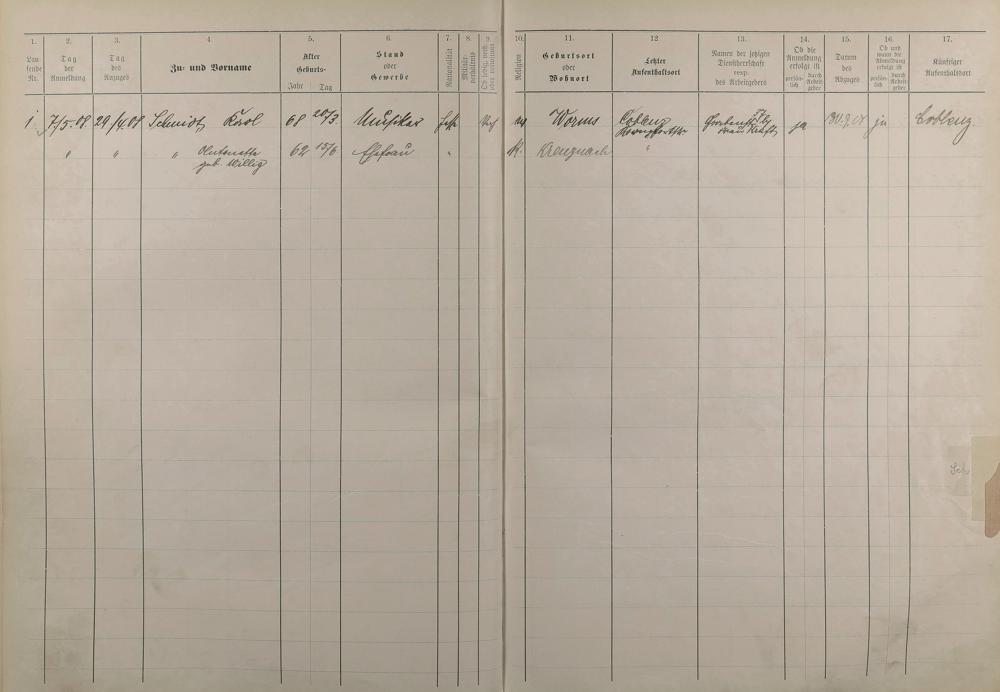 1.
2.
3.
4.
5.
6.
7.
8.
9.
10.
11.
12
13.
14.
15.
16.
17.
Lau
fende
Nr.
Tag
der
Anmeldung
Tag
des
Anzuges
Zu- und Vorname
Alter
Geburts-
Jahr Tag
Stand
oder
Gewerbe
Nationalität
Militär-
verhältnis
Ob ledig, verh.
oder verwitwet
Religion
Geburtsort
oder
Wohnort
Letzter
Aufenthaltsort
Namen der jetzigen
Dienstherrschaft
resp.
des Arbeitgebers
Ob die
Anmeldung
erfolgt ist
persön-
lich
durch
Arbeit
geber
Datum
des
Abzuges
Ob und
wann die
Abmeldung
erfolgt ist
persön-
lich
durch
Arbeit
geber
Künftiger
Aufenthaltsort
1 7/5.08. 29/4.08 Schmidt, Karl 68 20/3. Musiker Worms Coblenz ja ja Coblenz.
" " " Antonetta 62 15/6 Ehefrau " K. Kreuznach "
geb. Willig
Sch